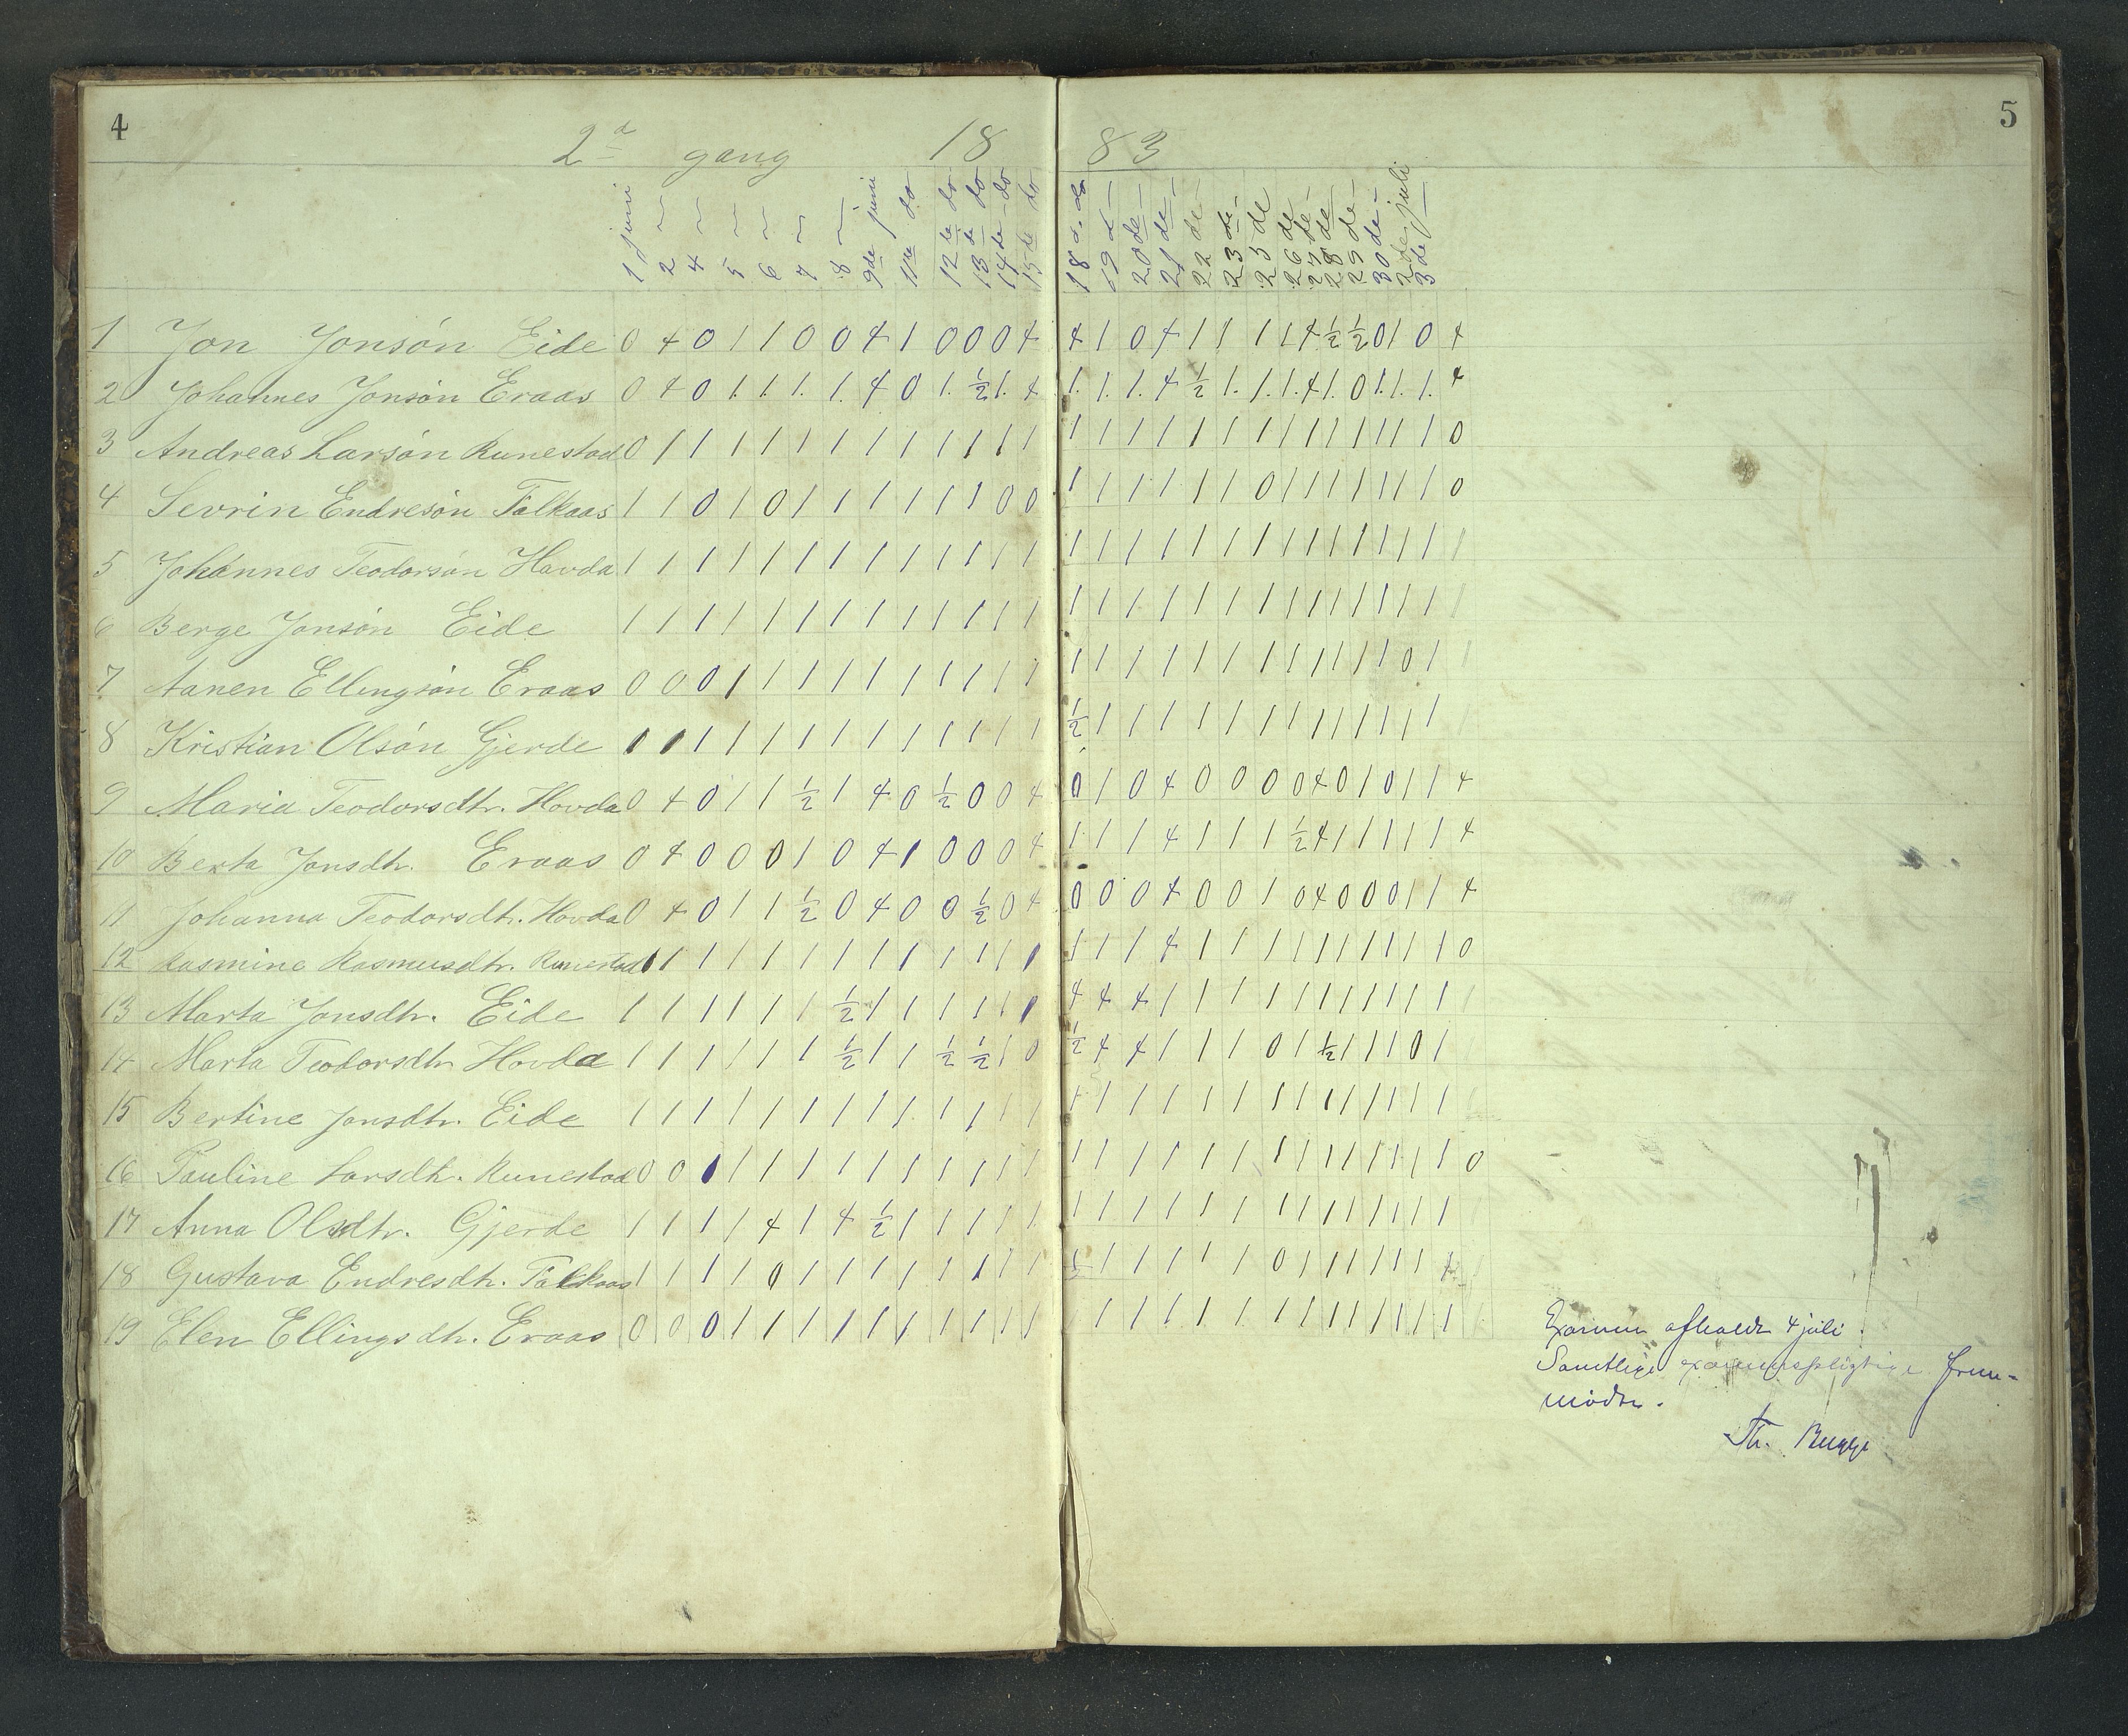 4
5
2d gang 1883
1 juni 2 4 5 6 7 8 9de juni 11te do 12te do 13de do 14de do 15de do 18 d. do 19 d 20de 21de 22 de 23 de 25 de 26 de 27de 28de 29de 30de 2de juli 3de
1 Jon Jonsón Eide 0 4 0 1 1 0 0 4 1 0 0 0 4 4 1 0 4 1 1 1 1 4 ½ ½ 0 1 0 4
2 Johannes Jonsón Eraas 0 4 0 1. 1. 1. 1. 4 0 1. ½ 1. 4 1. 1. 1. 4 ½ 1. 1. 1. 4 1. 0 1. 1. 1. 4
3 Andreas Larsón Runestad 0 1 1 1 1 1 1 1 1 1 1 1 1 1 1 1 1 1 1 1 1 1 1 1 1 1 1 0
4 Sevrin Endresón Tålkaas 1 1 0 1 0 1 1 1 1 1 1 0 0 1 1 1 1 1 1 0 1 1 1 1 1 1 1 0
5 Johannes Teodorsón Hovda 1 1 1 1 1 1 1 1 1 1 1 1 1 1 1 1 1 1 1 1 1 1 1 1 1 1 1 1
6 Berge Jonsón Eide 1 1 1 1 1 1 1 1 1 1 1 1 1 1 1 1 1 1 1 1 1 1 1 1 1 1 1 1
7 Aanen Ellingsón Eraas 0 0 0 1 1 1 1 1 1 1 1 1 1 1 1 1 1 1 1 1 1 1 1 1 1 0 1 1
8 Kristian Olsón Gjerde 1 1 1 1 1 1 1 1 1 1 1 1 1 ½ 1 1 1 1 1 1 1 1 1 1 1 1 1 1
9 Maria Teodorsdtr. Hovda 0 4 0 1 1 ½ 1 4 0 ½ 0 0 4 0 1 0 4 0 0 0 0 4 0 1 0 1 1 4
10 Berta Jonsdtr. Eraas 0 4 0 0 0 1 0 4 1 0 0 0 4 1 1 1 4 1 1 1 ½ 4 1 1 1 1 1 4
11 Johanna Teodorsdtr. Hovda 0 4 0 1 1 ½ 0 4 0 0 ½ 0 4 0 0 0 4 0 0 1 0 4 0 0 0 1 1 4
12 Rasmine Rasmusdtr. Runestad 1 1 1 1 1 1 1 1 1 1 1 1 1 1 1 1 4 1 1 1 1 1 1 1 1 1 1 0
13 Marta Jonsdtr. Eide 1 1 1 1 1 1 ½ 1 1 1 1 1 1 4 4 4 1 1 1 1 1 1 1 1 1 1 1 1
14 Marta Teodorsdtr Hovda 1 1 1 1 1 1 ½ 1 1 ½ ½ 1 0 ½ 4 4 1 1 1 0 1 ½ 1 1 1 0 1
15 Bertine Jonsdtr. Eide 1 1 1 1 1 1 1 1 1 1 1 1 1 1 1 1 1 1 1 1 1 1 1 1 1 1 1 1
16 Pauline Larsdtr. Runestad 0 0 1 1 1 1 1 1 1 1 1 1 1 1 1 1 1 1 1 1 1 1 1 1 1 1 1 0
17 Anna Olsdtr. Gjerde 1 1 1 1 4 1 4 ½ 1 1 1 1 1 1 1 1 1 1 1 1 1 1 1 1 1 1 1
18 Gustava Endresdtr. Tålkaas 1 1 1 1 0 1 1 1 1 1 1 1 1 ½ 1 1 1 1 1 0 1 1 1 1 1 1
19 Elen Ellingsdtr. Eraas 0 0 0 1 1 1 1 1 1 1 1 1 1 1 1 1 1 1 1 1 1 1 1 1 1 1
Examen afholdt 4 juli.
Samtlige examenspligtige frem-
mødte.
Th. Bugge